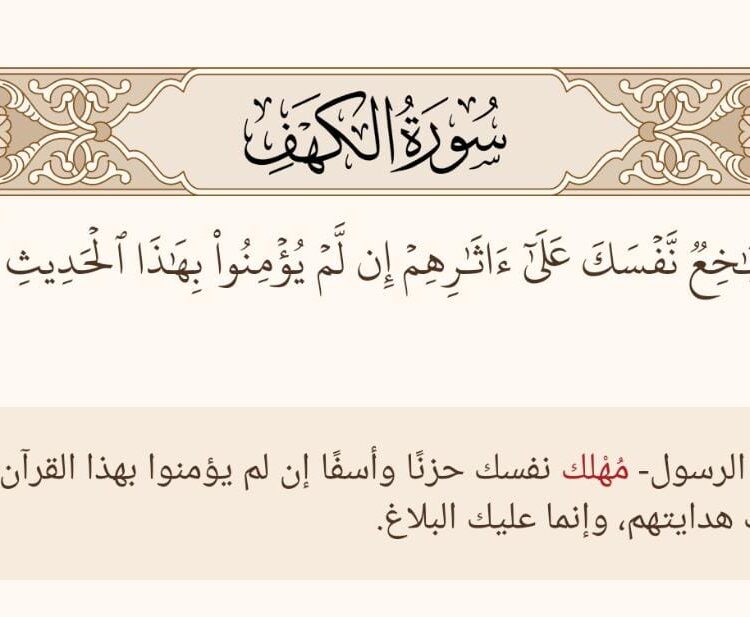 سُورَةُ الكَهْفِ
نَّفْسَكَ عَلَىٰٓ ءَاثَٰرِهِمْ إِن لَّمْ يُؤْمِنُوا۟ بِهَٰذَا ٱلْحَدِيثِ
الرسول- مُهْلك نفسك حزنًا وأسفًا إن لم يؤمنوا بهذا القرآن
هدايتهم، وإنما عليك البلاغ.